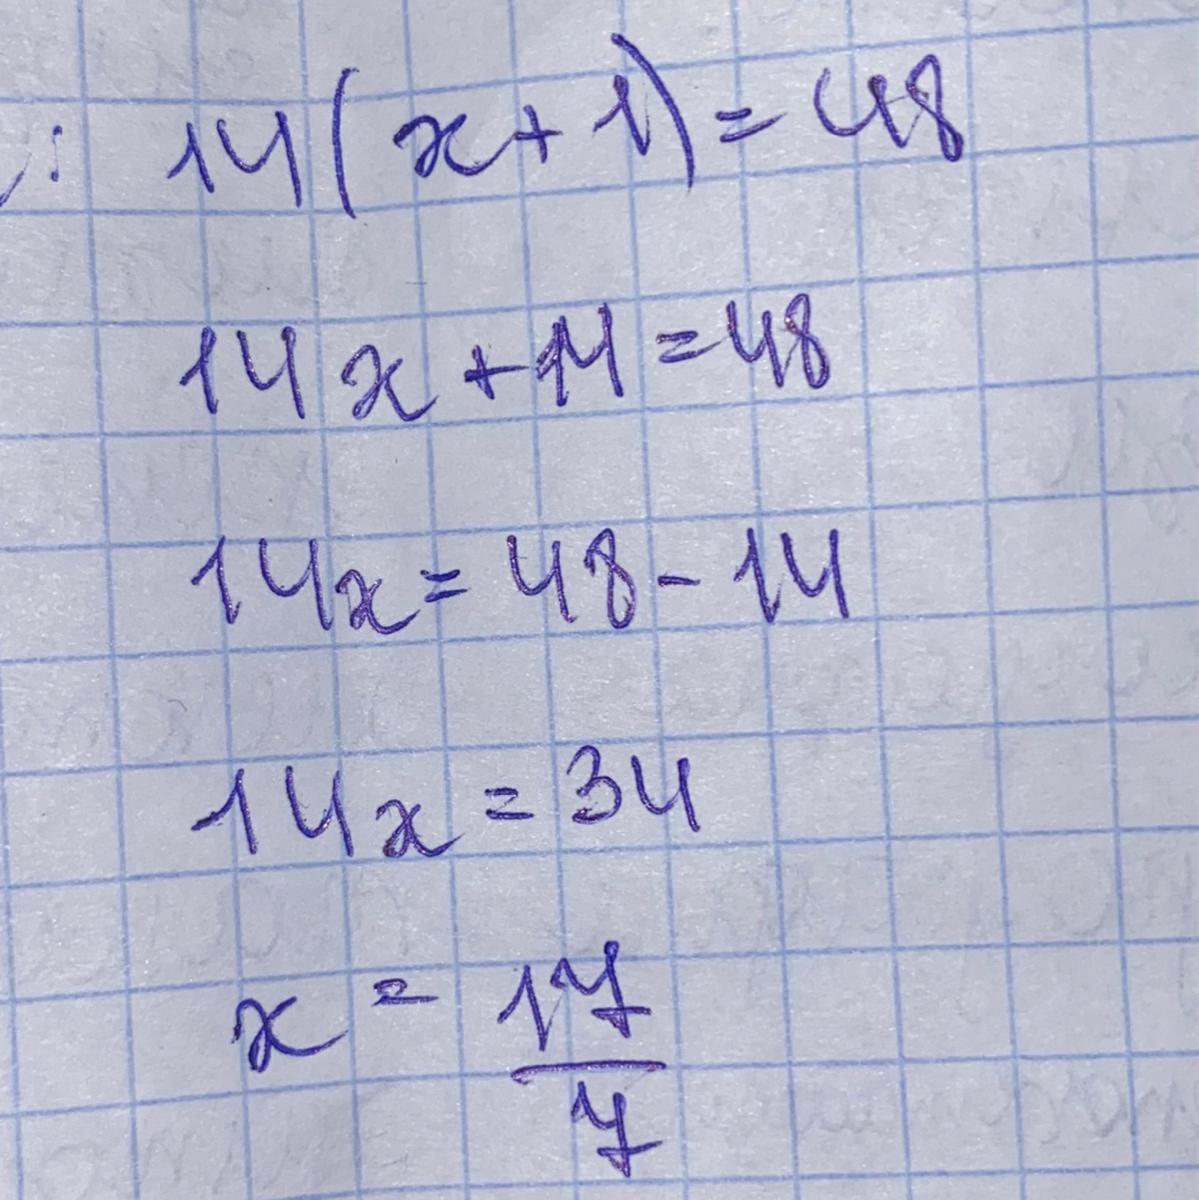 : 14(x+1)=48
14x+14=48
14x=48-14
14x=34
x=17/7